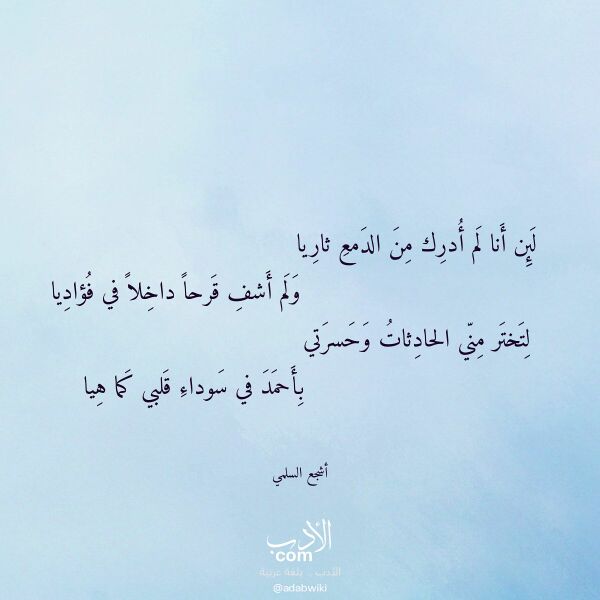 لَئِن أَنا لَم أُدرِك مِنَ الدَمعِ ثارِيا
وَلَم أَشفِ قَرحاً داخِلاً في فُؤادِيا
لِتَختَر مِنّي الحادِثاتُ وَحَسرَتي
بِأَحمَدَ في سَوداءِ قَلبي كَما هِيا
أشجع السلمي
الأدب
com
الأدب .. بلغة عربية
@adabwiki